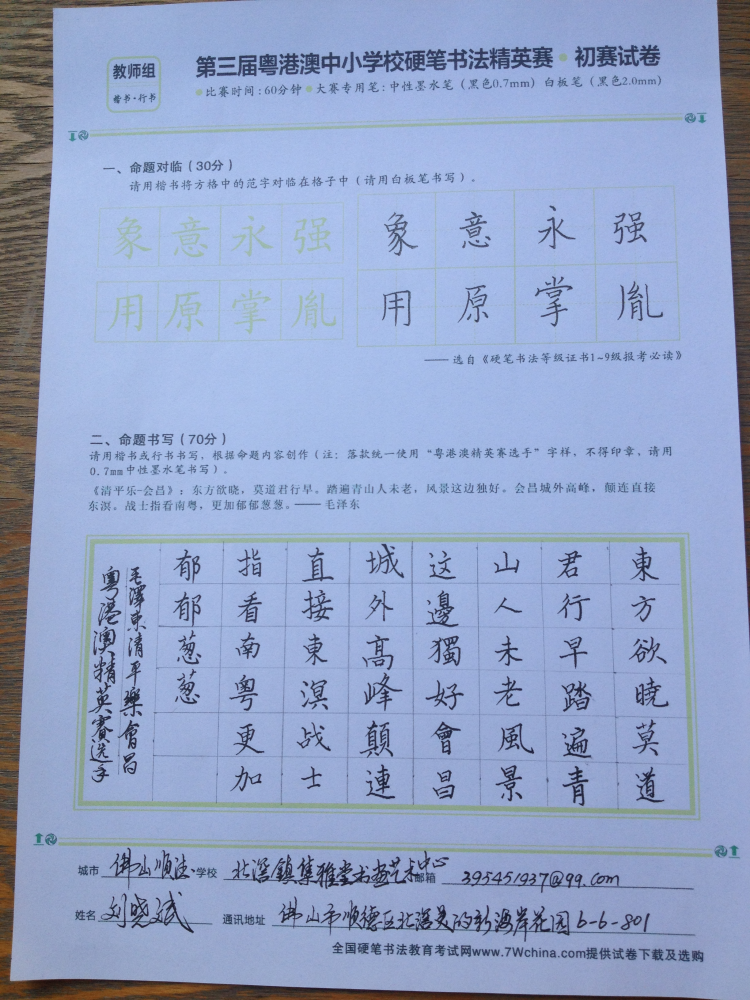 教师组
楷书·行书
第三届粤港澳中小学校硬笔书法精英赛·初赛试卷
比赛时间:60分钟 大赛专用笔:中性墨水笔(黑色0.7mm) 白板笔(黑色2.0mm)
一、命题对临(30分)
请用楷书将方格中的范字对临在格子中(请用白板笔书写)。
象意永强
用原掌胤
象意永强
用原掌胤
——选自《硬笔书法等级证书1~9级报考必读》
二、命题书写(70分)
请用楷书或行书书写,根据命题内容创作(注:落款统一使用“粤港澳精英赛选手”字样,不得印章,请用
0.7mm中性墨水笔书写)。
《清平乐-会昌》:东方欲晓,莫道君行早。踏遍青山人未老,风景这边独好。会昌城外高峰,颠连直接
东溟。战士指看南粤,更加郁郁葱葱。——毛泽东
東方欲晓莫道
君行早踏遍青
山人未老風景
这邊獨好會昌
城外高峰顛連
直接東溟战士
指看南粤更加
郁郁葱葱
毛澤東清平樂會昌
粵港澳精英賽选手
城市 佛山顺德 学校 北滘镇集雅堂书画艺术中心 邮箱 395451937@qq.com
姓名 刘晓斌 通讯地址 佛山市顺德区北滘美的新海岸花园6-6-801
全国硬笔书法教育考试网www.7Wchina.com提供试卷下载及选购